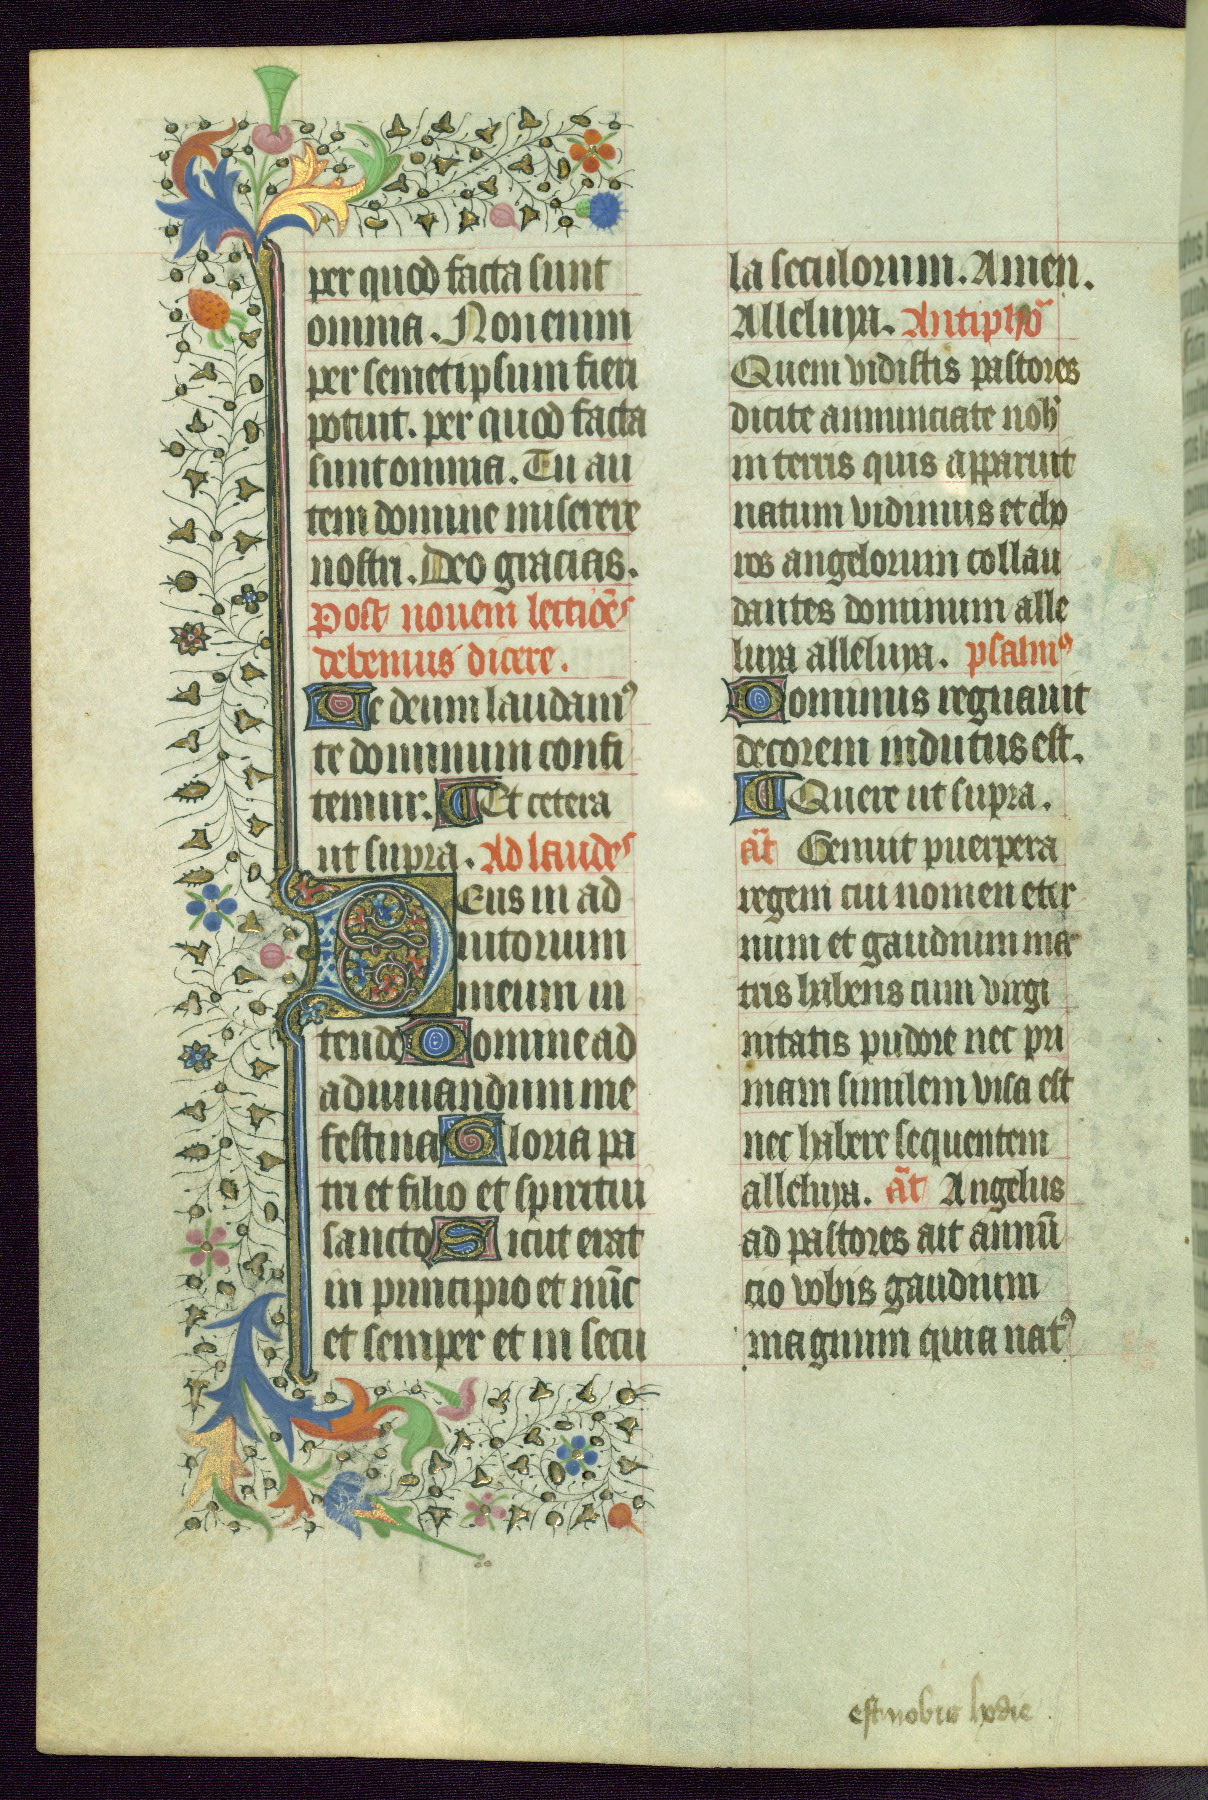 per quod facta sunt
omnia. Non enim
per semetipsum fieri
potuit. per quod facta
sunt omnia. Tu au
tem domine miserere
nostri. Deo gracias.
Post novem lectiões
debemus dicere.
Te deum laudamꝰ
te dominum confi
temur. Et cetera
ut supra. Ad laudes
Deus in ad
iutorium
meum in
tende Domine ad
adiuuandum me
festina Gloria pa
tri et filio et spiritui
sancto Sicut erat
in principio et nūc
et semper et in secu
la seculorum. Amen.
Alleluya. Antiphõ
Quem vidistis pastores
dicite annunciate nob̉
in terris quis apparuit
natum vidimus et cho
ros angelorum collau
dantes dominum alle
luya alleluya. psalmꝰ
Dominus regnauit
decorem indutus est.
Quere ut supra.
añt Genuit puerpera
regem cui nomen eter
num et gaudium ma
tris habens cum virgi
nitatis pudore nec pri
mam similem visa est
nec habere sequentem
alleluya. añt Angelus
ad pastores ait annū
cio vobis gaudium
magnum quia natꝰ
est nobis hodie